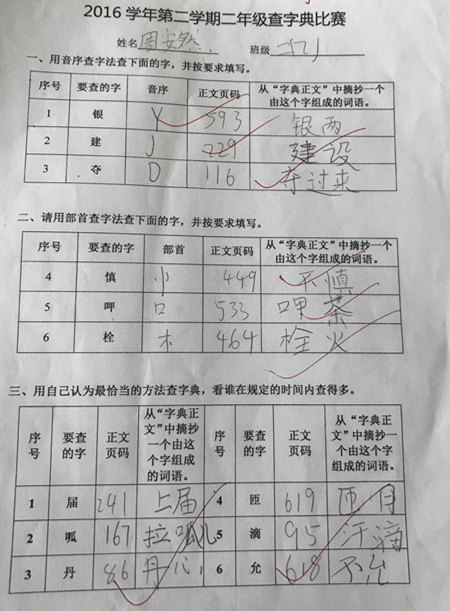 2016 学年第二学期二年级查字典比赛
姓名 周安然 班级
一、用音序查字法查下面的字，并按要求填写。
序号 要查的字 音序 正文页码 从“字典正文”中摘抄一个由这个字组成的词语。
1 银 Y 593 银两
2 建 J 229 建设
3 夺 D 116 夺过来
二、请用部首查字法查下面的字，并按要求填写。
序号 要查的字 部首 正文页码 从“字典正文”中摘抄一个由这个字组成的词语。
4 慎 忄 449 不慎
5 呷 口 533 呷茶
6 栓 木 464 栓火
三、用自己认为最恰当的方法查字典，看谁在规定的时间内查得多。
序号 要查的字 正文页码 从“字典正文”中摘抄一个由这个字组成的词语。 序号 要查的字 正文页码 从“字典正文”中摘抄一个由这个字组成的词语。
1 届 241 上届 4 匝 619 匝月
2 呱 167 拉呱儿 5 滴 95 汗滴
3 丹 86 丹心 6 允 618 不允